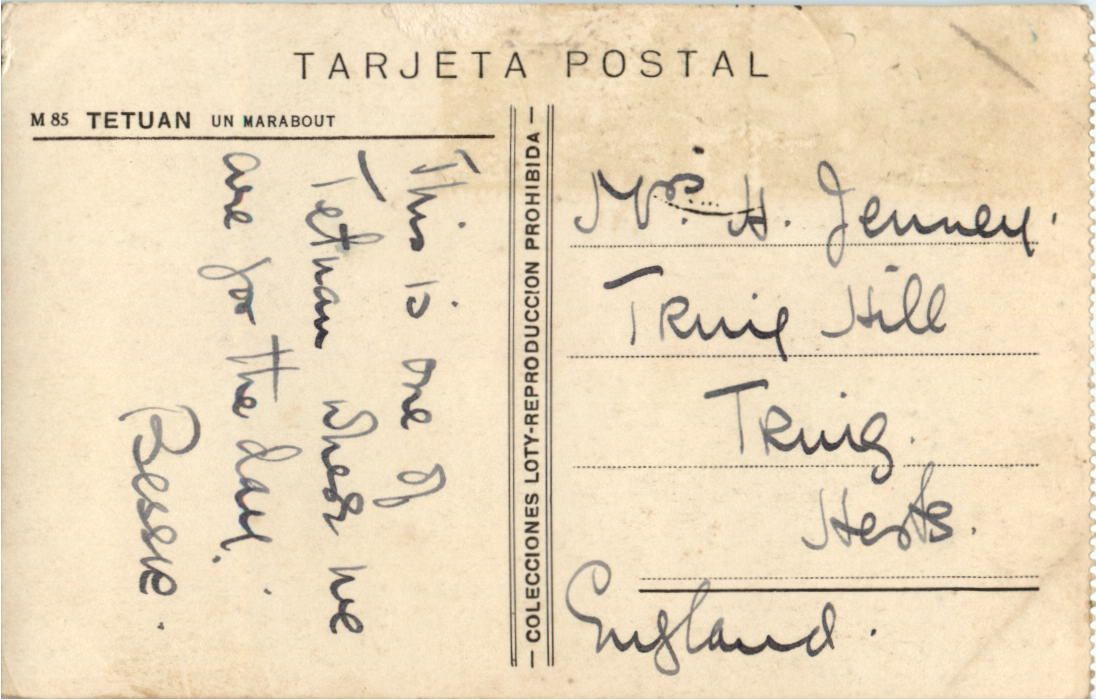 TARJETA POSTAL
M 85 TETUAN UN MARABOUT
This is one of
Tetuan where we
are for the day.
Bessie.
— COLECCIONES LOTY-REPRODUCCION PROHIBIDA —
Mrs. H. Jenney.
Tring Hill
Tring.
Herts.
England.